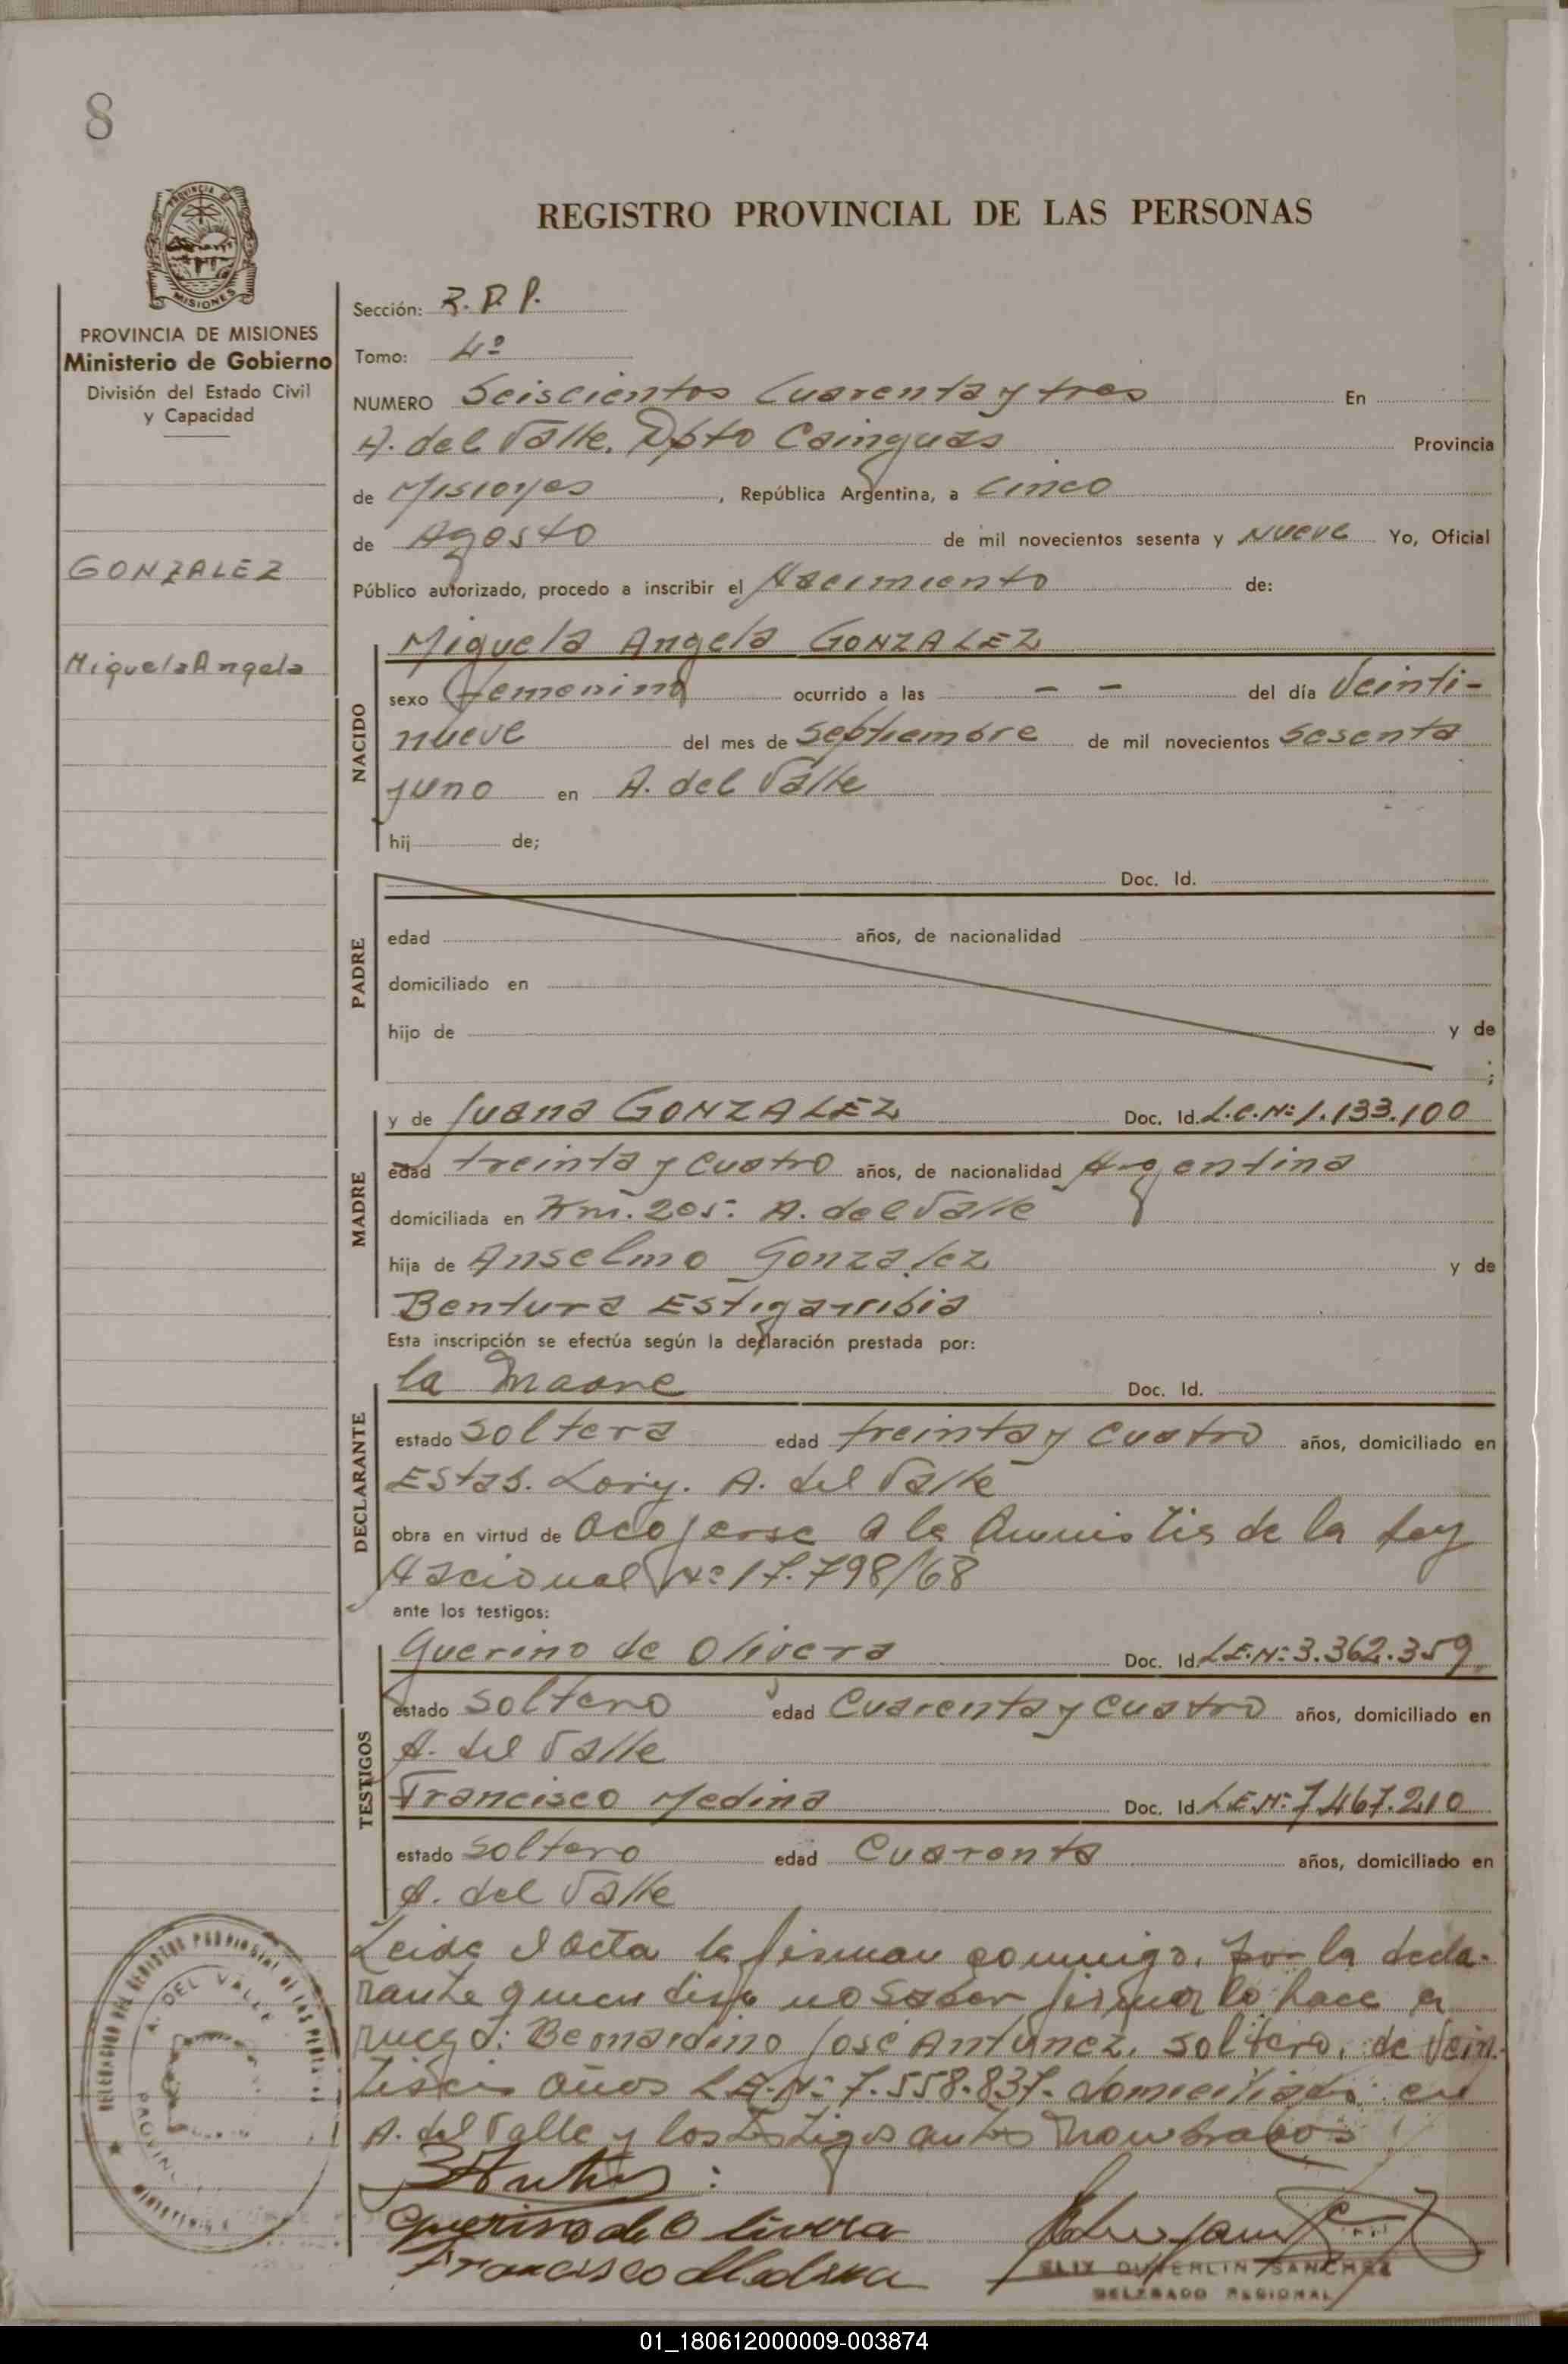 8
PROVINCIA DE
MISIONES
REGISTRO PROVINCIAL DE LAS PERSONAS
PROVINCIA DE MISIONES
Ministerio de Gobierno
División del Estado Civil
y Capacidad
GONZALEZ
Miguela Angela
Sección: R.P.P.
Tomo: 4º
NUMERO Seiscientos Cuarenta y tres En
A. del Valle. Dpto Cainguas Provincia
de Misiones , República Argentina, a Cinco
de Agosto de mil novecientos sesenta y Nueve Yo, Oficial
Público autorizado, procedo a inscribir el Nacimiento de:
NACIDO
Miguela Angela GONZALEZ
sexo Femenino ocurrido a las - - del día Veinti-
nueve del mes de Septiembre de mil novecientos Sesenta
yuno en A. del Valle
hij de;
PADRE
Doc. Id.
edad años, de nacionalidad
domiciliado en
hijo de y de
;
MADRE
y de Juana GONZALEZ Doc. Id. L.C.Nº 1.133.100
edad treinta y cuatro años, de nacionalidad Argentina
domiciliada en Km. 205. A. del Valle
hija de Anselmo Gonzalez y de
Bentura Estigarribia
Esta inscripción se efectúa según la declaración prestada por:
DECLARANTE
la Madre Doc. Id.
estado soltera edad treinta y cuatro años, domiciliado en
Estab. Lory. A. del Valle
obra en virtud de acojerse a la Amnistia de la Ley
Nacional Nº 17.798/68
ante los testigos:
TESTIGOS
Querino de Olivera Doc. Id. L.E.Nº 3.362.359
estado soltero edad Cuarenta y cuatro años, domiciliado en
A. del Valle
Francisco Medina Doc. Id. L.E.Nº 7.467.210
estado soltero edad Cuarenta años, domiciliado en
A. del Valle
Leida el acta la firman conmigo, por la decla-
rante quien dijo no saber firmar lo hace a
ruego: Bernardino José Antunez, soltero, de Vein-
tiseis años L.E.Nº 7.558.837. domiciliado en
A. del Valle y los testigos antes nombrados
Querino de Olivera
Francisco Medina
SANCHEZ
DELEGADO REGIONAL
DELEGACION DEL REGISTRO PROVINCIAL DE LAS PERSONAS
A. DEL VALLE
01_180612000009-003874